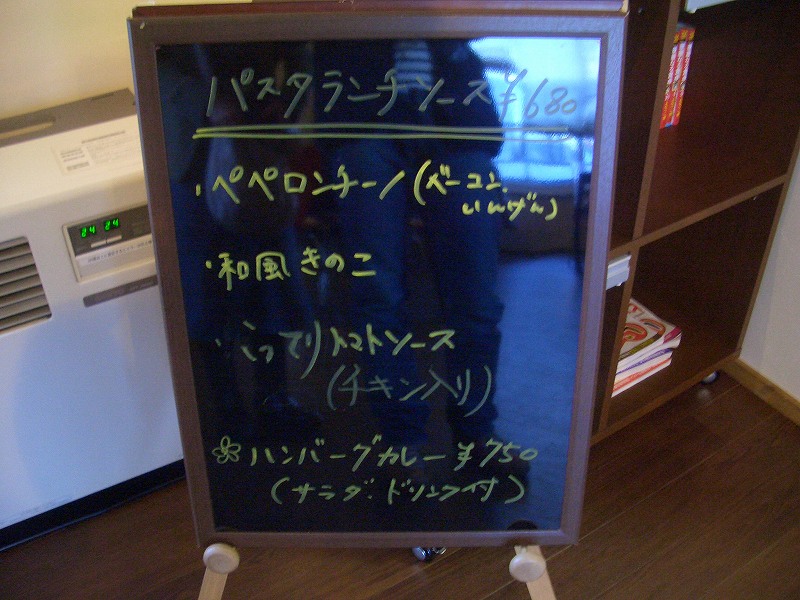 パスタランチソース¥680
・ペペロンチーノ(ベーコン.
いんげん)
・和風きのこ
・こってりトマトソース
(チキン入り)
ハンバーグカレー¥750
(サラダ.ドリンク付)
24 24